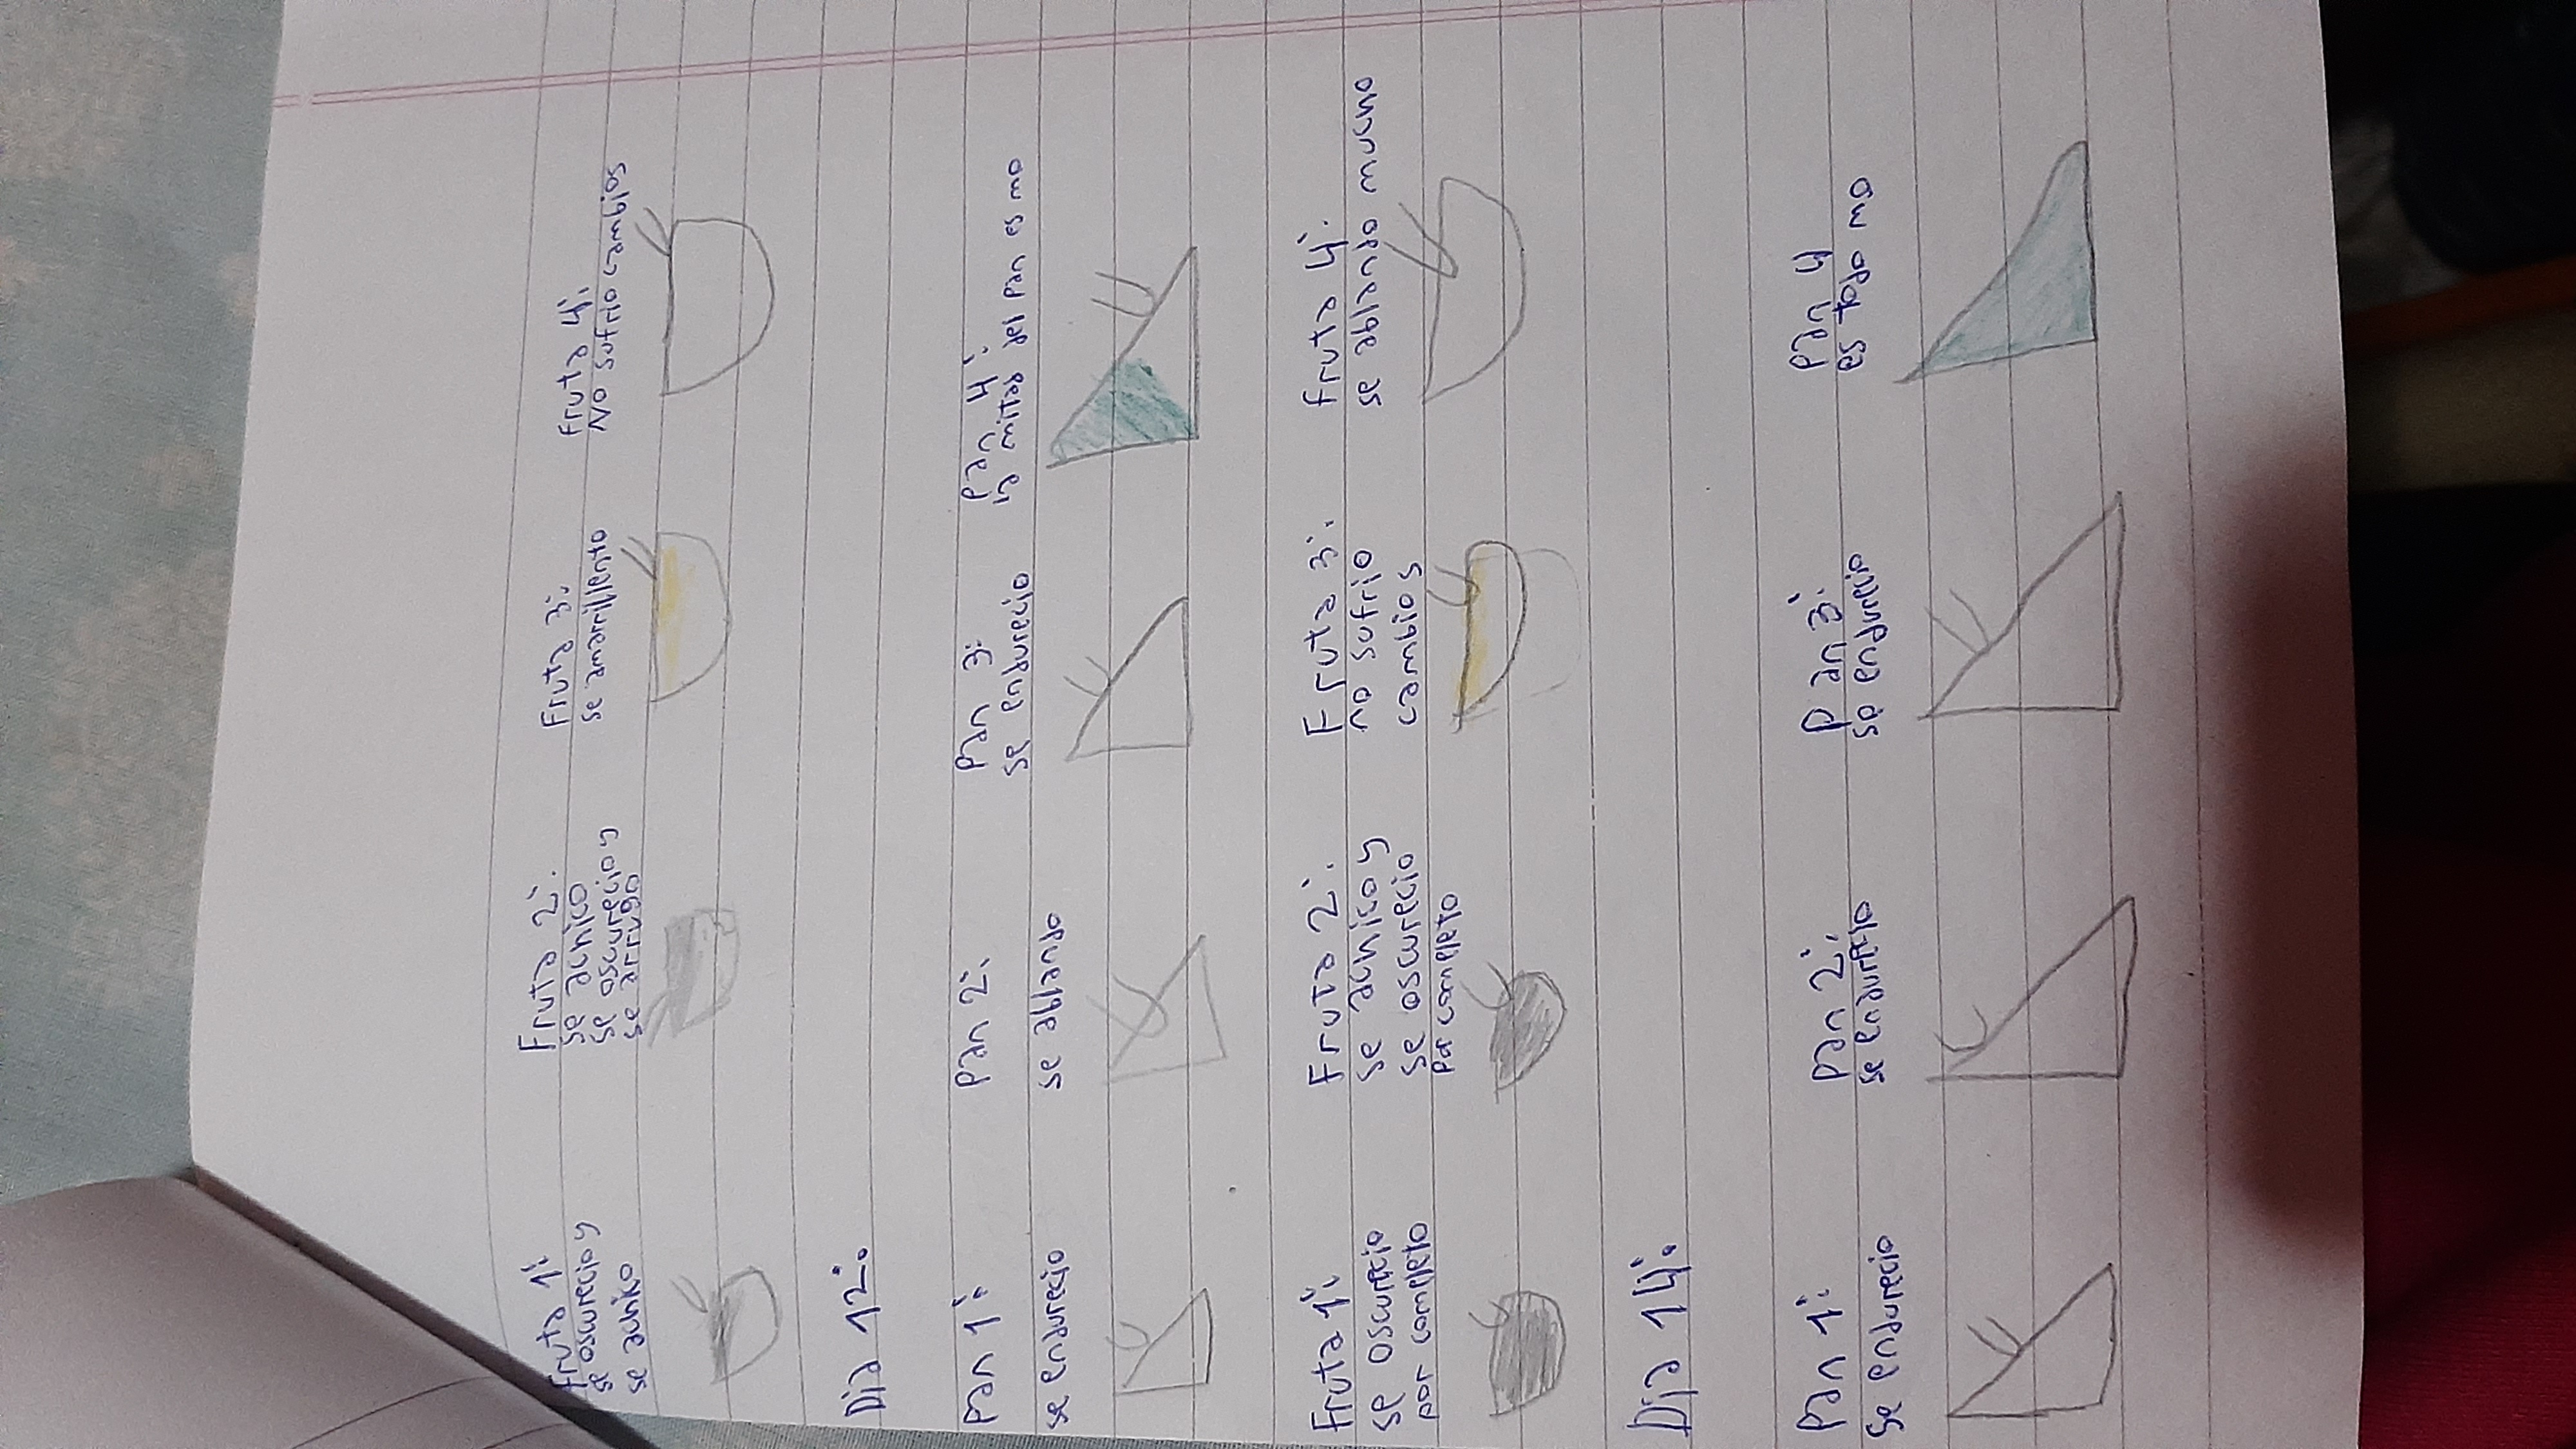 Fruta 1:
se oscurecio y
se achico
Fruta 2:
se achico
se oscurecio y
se arrugo
Fruta 3:
se amarillento
Fruta 4:
No sufrio cambios
Dia 12:
Pan 1:
se endurecio
Pan 2:
se ablando
Pan 3:
se endurecio
Pan 4:
la mitad del pan es mo
Fruta 1:
se oscurecio
por completo
Fruta 2:
se achico y
se oscurecio
por completo
Fruta 3:
no sufrio
cambios
Fruta 4:
se ablando mucho
Dia 14:
Pan 1:
se endurecio
Pan 2:
se endurecio
Pan 3:
se endurecio
Pan 4
es todo mo